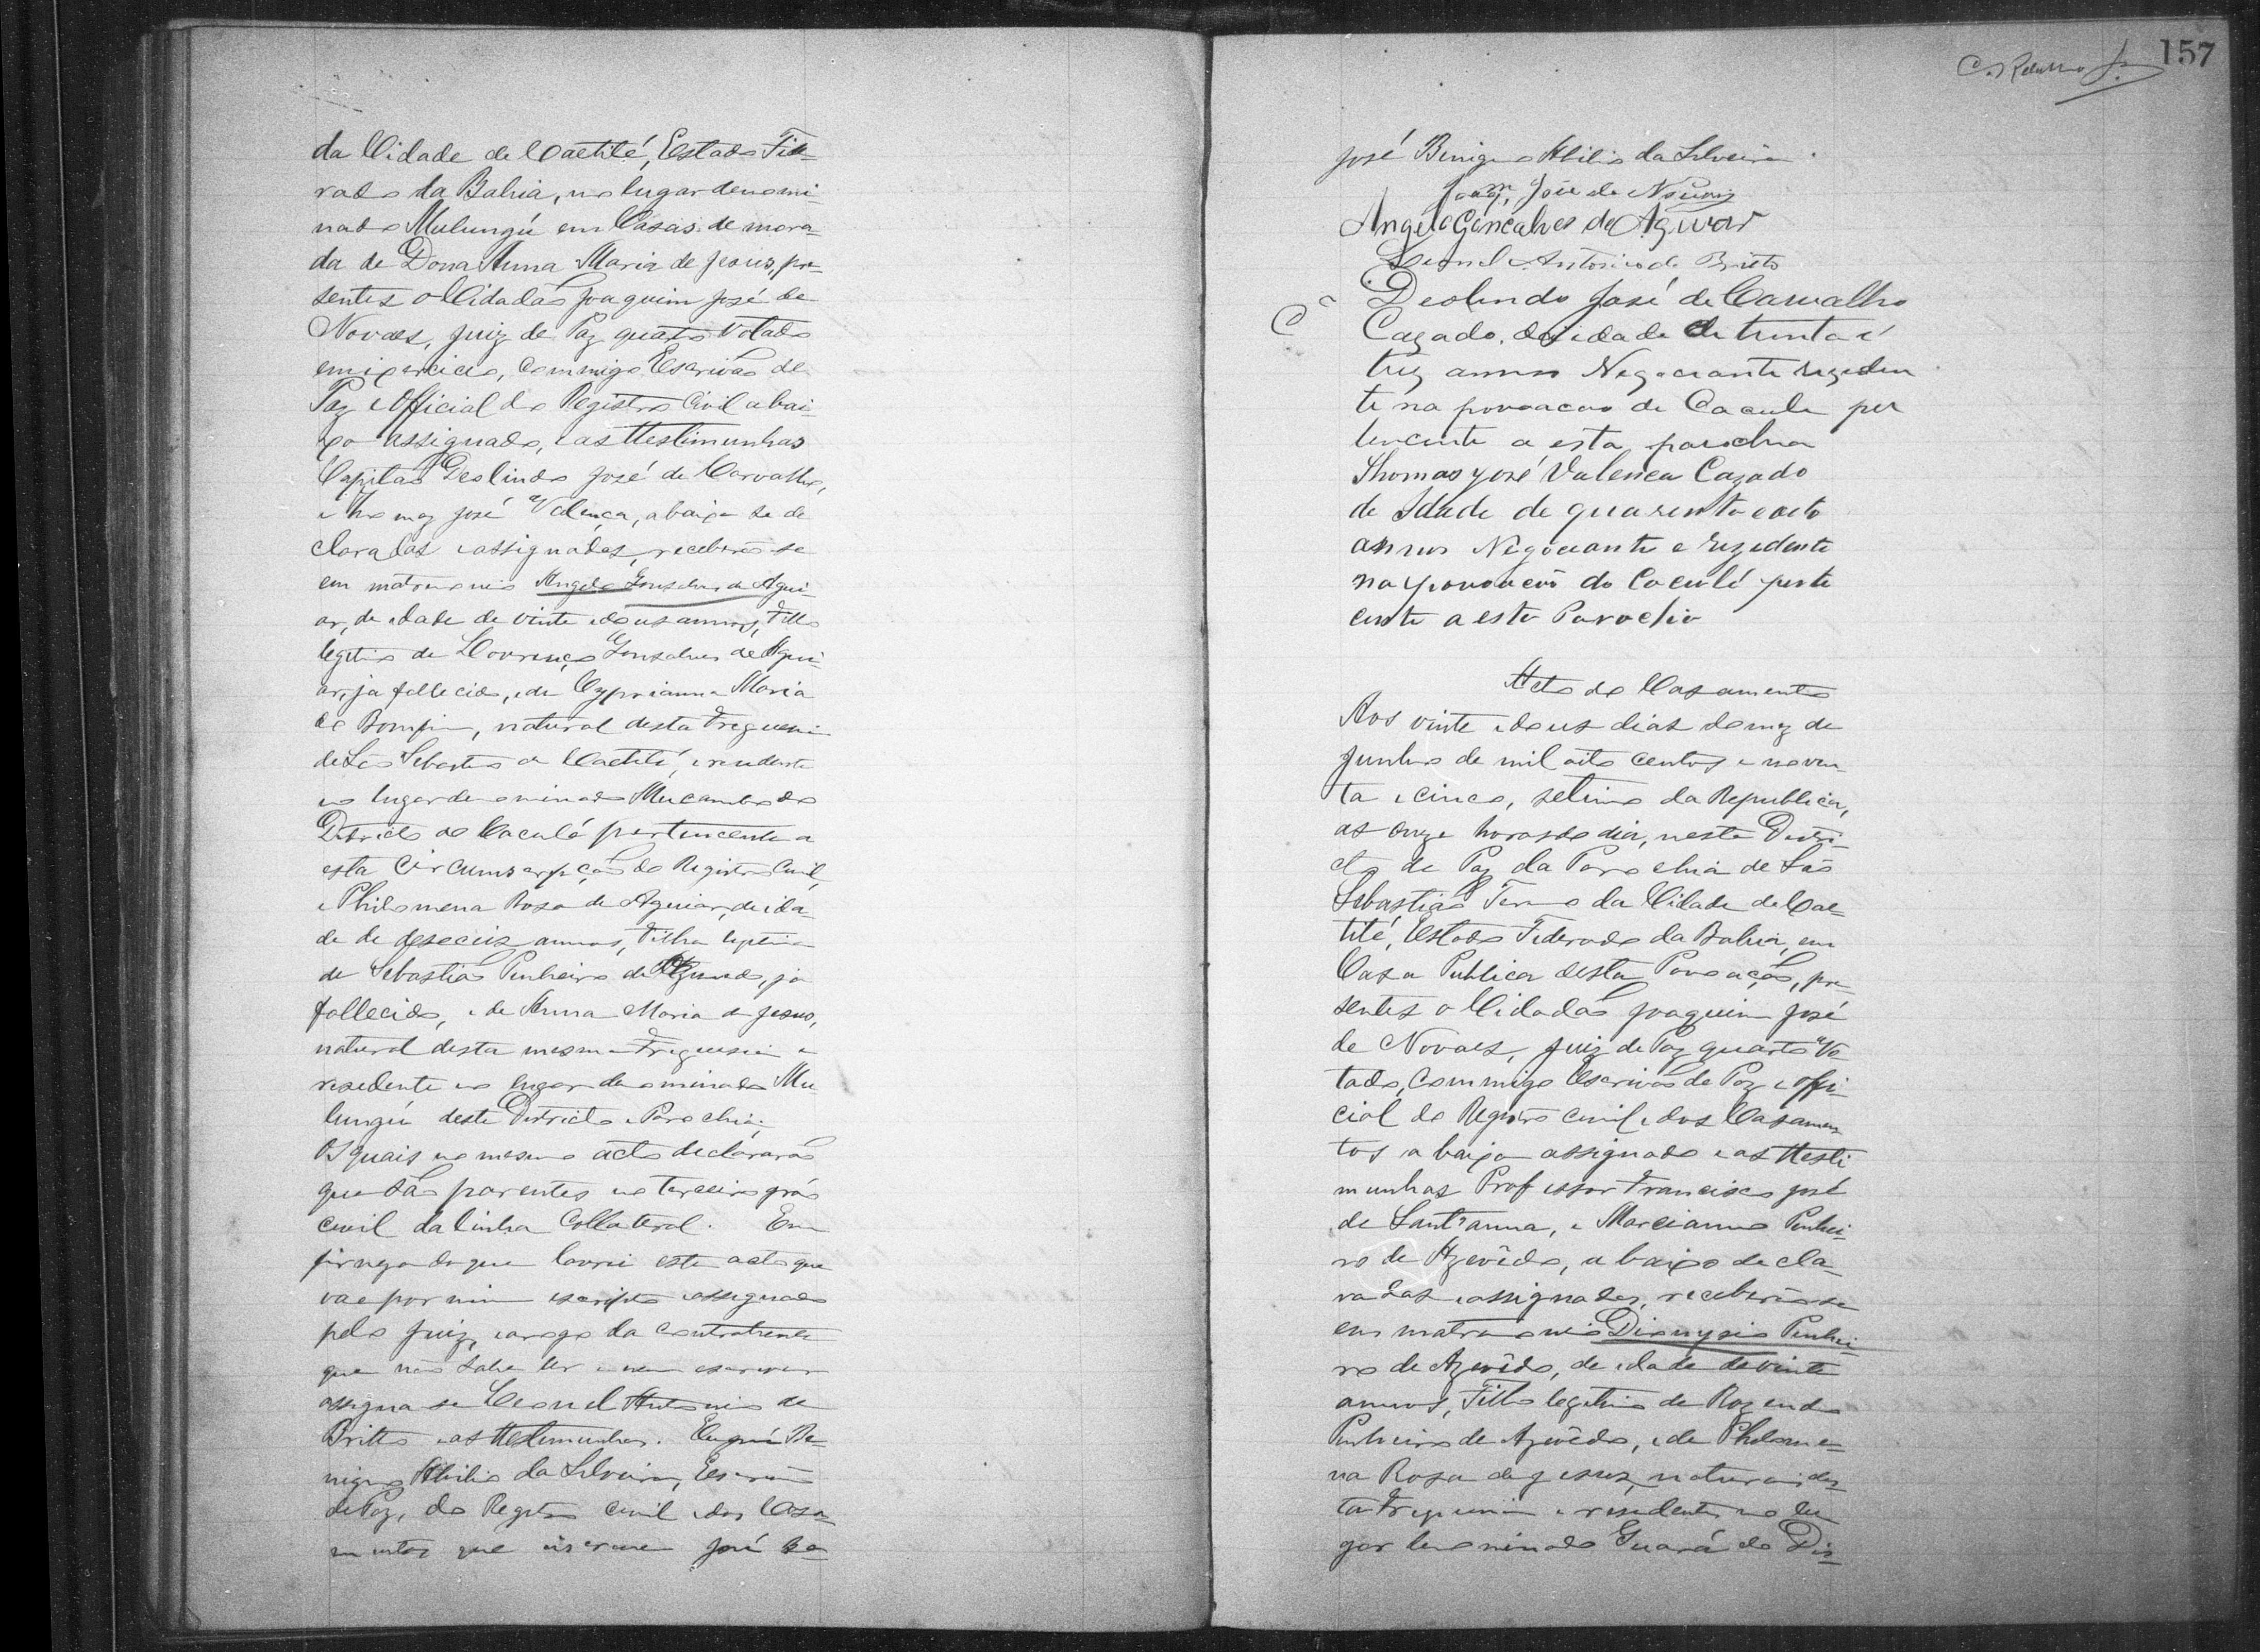 da Cidade de Caetité, Estado Fede-
rado da Bahia, no lugar denomi-
nado Mulungú em Casas de mora-
da de Dona Anna Maria de Jesus, pre-
sentes o Cidadão Joaquim José de
Novaes, Juiz de Paz quarto Votado
em exercicio, commigo Escrivão de
Paz e Official do Registro Civil abai-
xo assignado, e as ttestimunhas
Capitão Deolindo José de Carvalho,
e Thomaz José Valença, abaixo se de
claradas e assignadas, receberão-se
em matrimonio Angelo Gonsalves de Agui-
ar, de idade de vinte e dous annos, Filho
legitimo de Lourenço Gonsalves de Agui-
ar, ja fallecido, e de Cyprianna Maria
do Bomfim, natural desta Freguesia
de São Sebastião de Caetité, e residente
no lugar denominado Mucambo do
Districto de Caculé pertencente a
esta Circumscripção do Registro Civil,
e Philomena Rosa de Aguiar, de ida-
de de deseceis annos, Filha legitima
de Sebastião Pinheiro de Azevedo, ja
fallecido, e de Anna Maria de Jesus,
natural desta mesma Freguesia e
residente no lugar denominado Mu-
lungú deste Districto e Parochia;
Os quais no mesmo acto declararão
que são parentes no terceiro gráo
civil da linha Collateral. Em
firmeza do que lavrei este acto que
vae por mim escripto e assignado
pelo Juiz, e arogo da Contrahente
que não sabe ler e nem escrever
assigna-se Leonel Antonio de
Britto e as ttestimunhas. Eu José Be-
nigno Abilio da Silveira, Escrivão
de Paz, do Registro Civil e dos Casa-
mentos que escrevi José Be-
157
José Benigno Abilio da Silveira
Joaqm. José de Novais
Angelo Gonçalves de Aguiar
Leonel Antonio de Britto
Deolindo José de Carvalho
Cazado, de idade de trinta é
trez annos Negociante rezeden
te na povoacao de Cacule per
tencente a esta parochia
Thomas José Valenca Cazado
de Idade de quarenta e oito
annos Negociante e rezedente
na povoacão do Caculé perte
cente a esta Parochia
Acto de Casamento
Aos vinte e dous dias do mez de
Junho de mil oito centos e noven-
ta e cinco, setimo da Republica,
as onze horas do dia, neste Distri-
cto de Paz da Parochia de São
Sebastião Termo da Cidade de Cae-
tité, Estado Federado da Bahia, em
Casa Publica desta Povoação, pre-
sentes o Cidadão Joaquim José
de Novaes, Juiz de Paz quarto Vo-
tado, Commigo Escrivão de Paz e offi-
cial do Registro Civil e dos Casamen
tos abaixo assignado e as ttesti
munhas Professor Francisco José
de Sant'anna, e Marcianno Pinhei-
ro de Azevêdo, abaixo decla-
radas e assignadas, receberão-se
em matrimonio Dionysio Pinhei-
ro de Azevêdo, de idade de vinte
annos, Filho legitimo de Rozendo
Pinheiro de Azevêdo, e de Philome-
na Rosa de Jesus, naturais des
ta Freguesia e residentes no lu
gar denominado Guará do Dis-